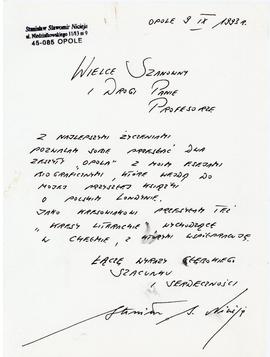 Stanisław Sławomir Nicieja
ul. Niedziałkowskiego 11/13 m 9
45-085 OPOLE
OPOLE 9 IX 1993 r.
WIELCE SZANOWNY
I DROGI PANIE
PROFESORZE
Z NAJLEPSZYMI ŻYCZENIAMI
POZWALAM SOBIE PRZESŁAĆ DWA
ZESZYTY „OPOLA” Z MOIMI ESEJAMI
BIOGRAFICZNYMI, KTÓRE WEJDĄ DO
MOJEJ PRZYSZŁEJ KSIĄŻKI
O POLSKIM LONDYNIE.
JAKO WARSZAWIAKOWI PRZESYŁAM TEŻ
„KRESY LITERACKIE” WYCHODZĄCE
W CHEŁMIE, Z KTÓRYMI WSPÓŁPRACUJĘ.
ŁĄCZĘ WYRAZY GŁĘBOKIEGO
SZACUNKU
I SERDECZNOŚCI
Stanisław S. Nicieja